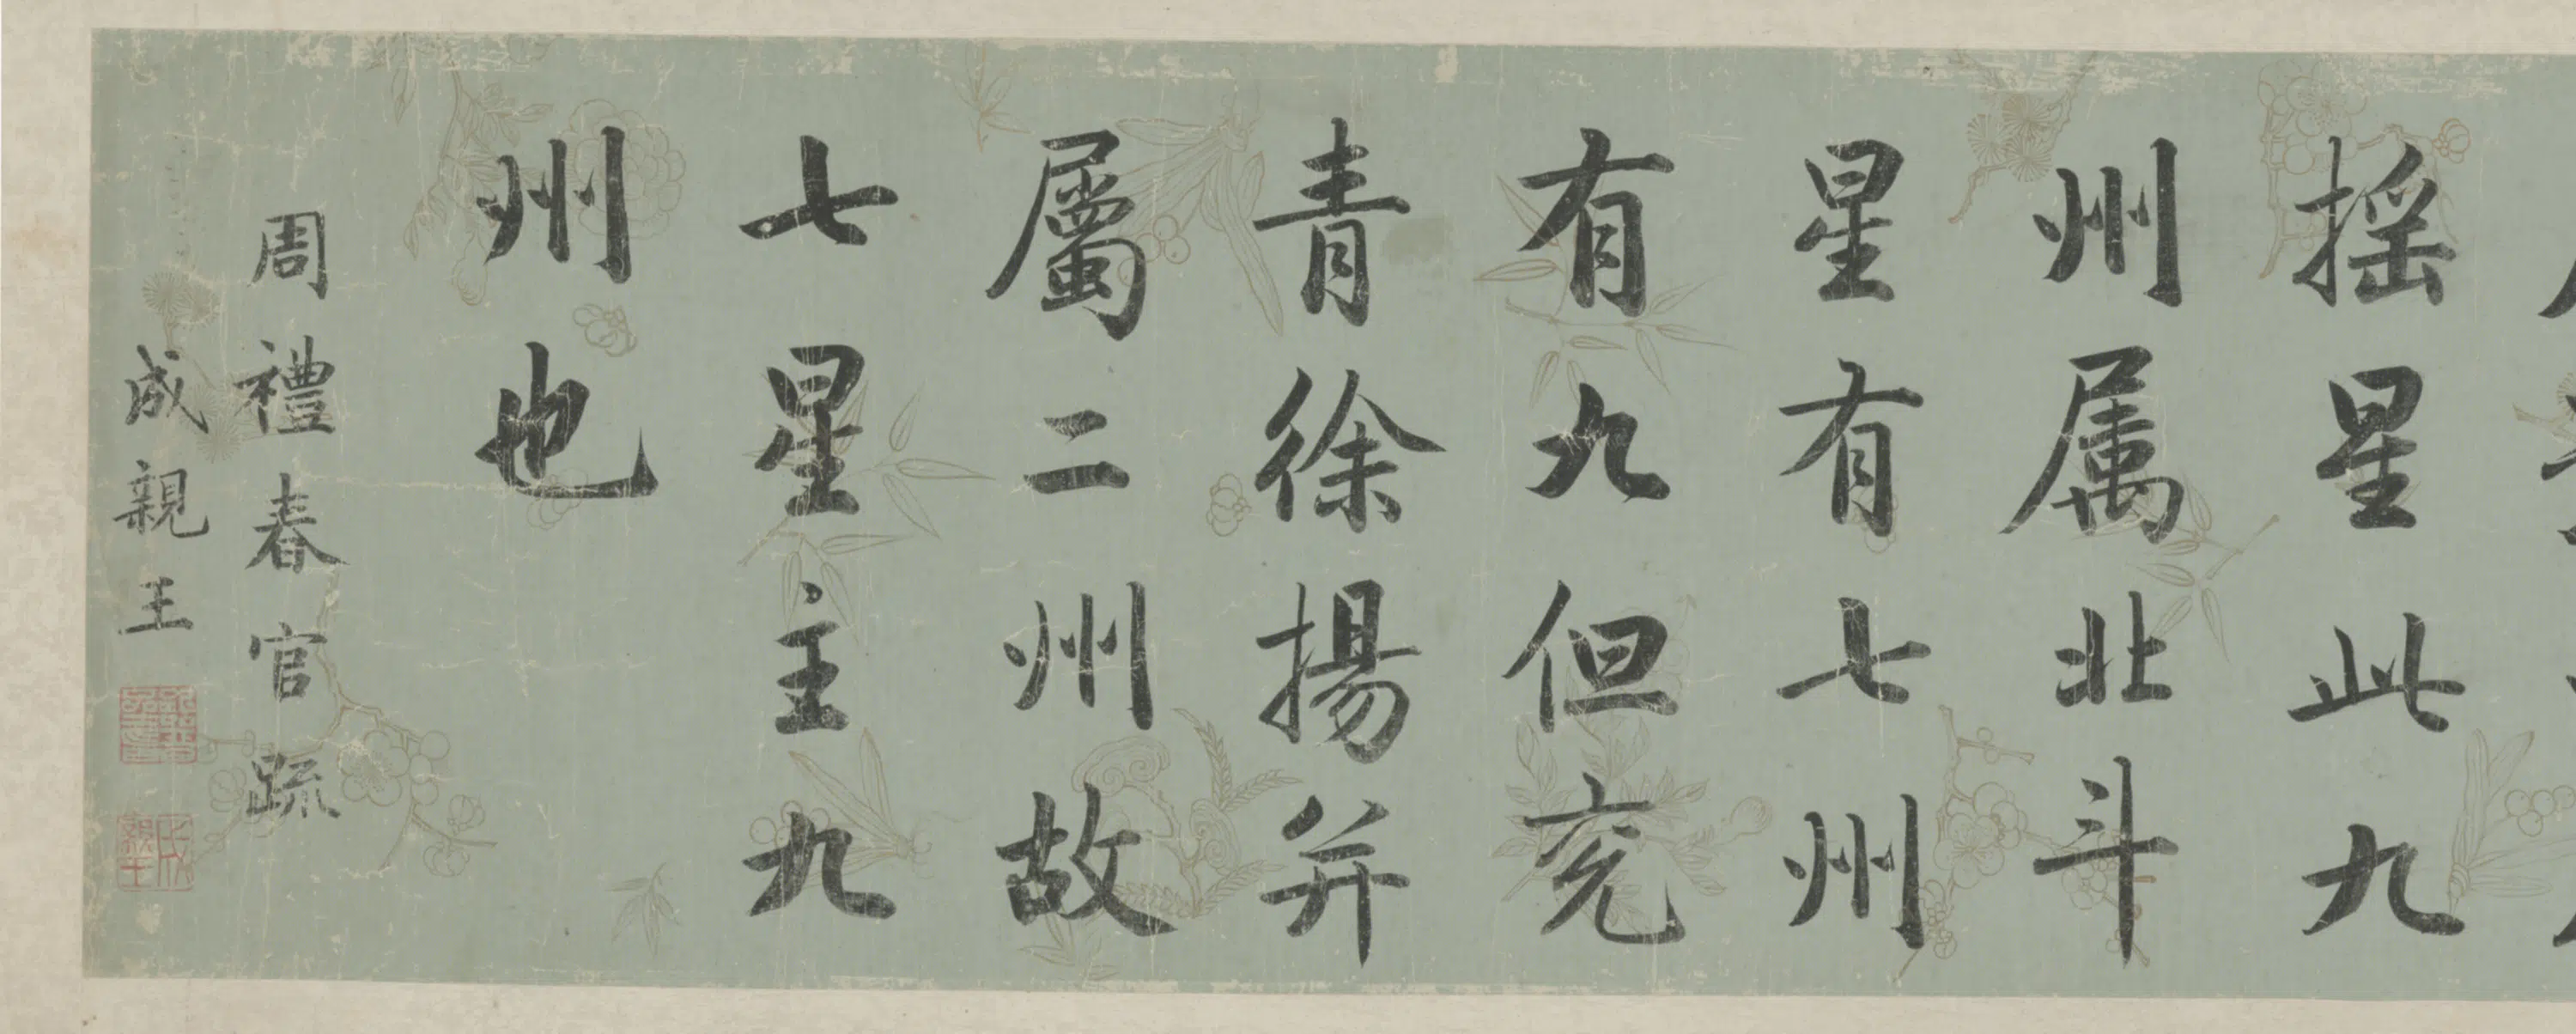 搖星此九
州属北斗
星有七州
有九但兖
青徐揚并
屬二州故
七星主九
州也
周禮春官疏
成親王